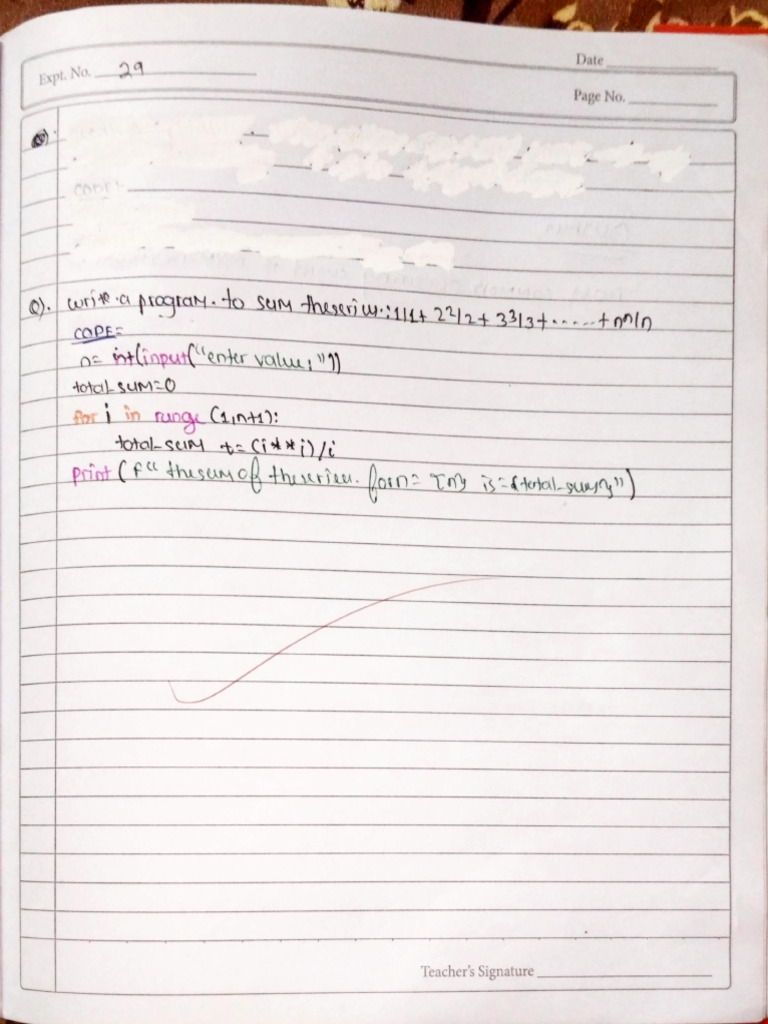 Expt. No. 29
Date
Page No.
Q). write a program. to sum theseries:1/1+ 2²/2+ 3³/3+.....+nⁿ/n
CODE=
n= int(input("enter value:"))
total_sum=0
for i in range (1,n+1):
total_sum += (i**i)/i
print (f" thesum of theseries. for n= {n} is={total_sum}")
Teacher's Signature